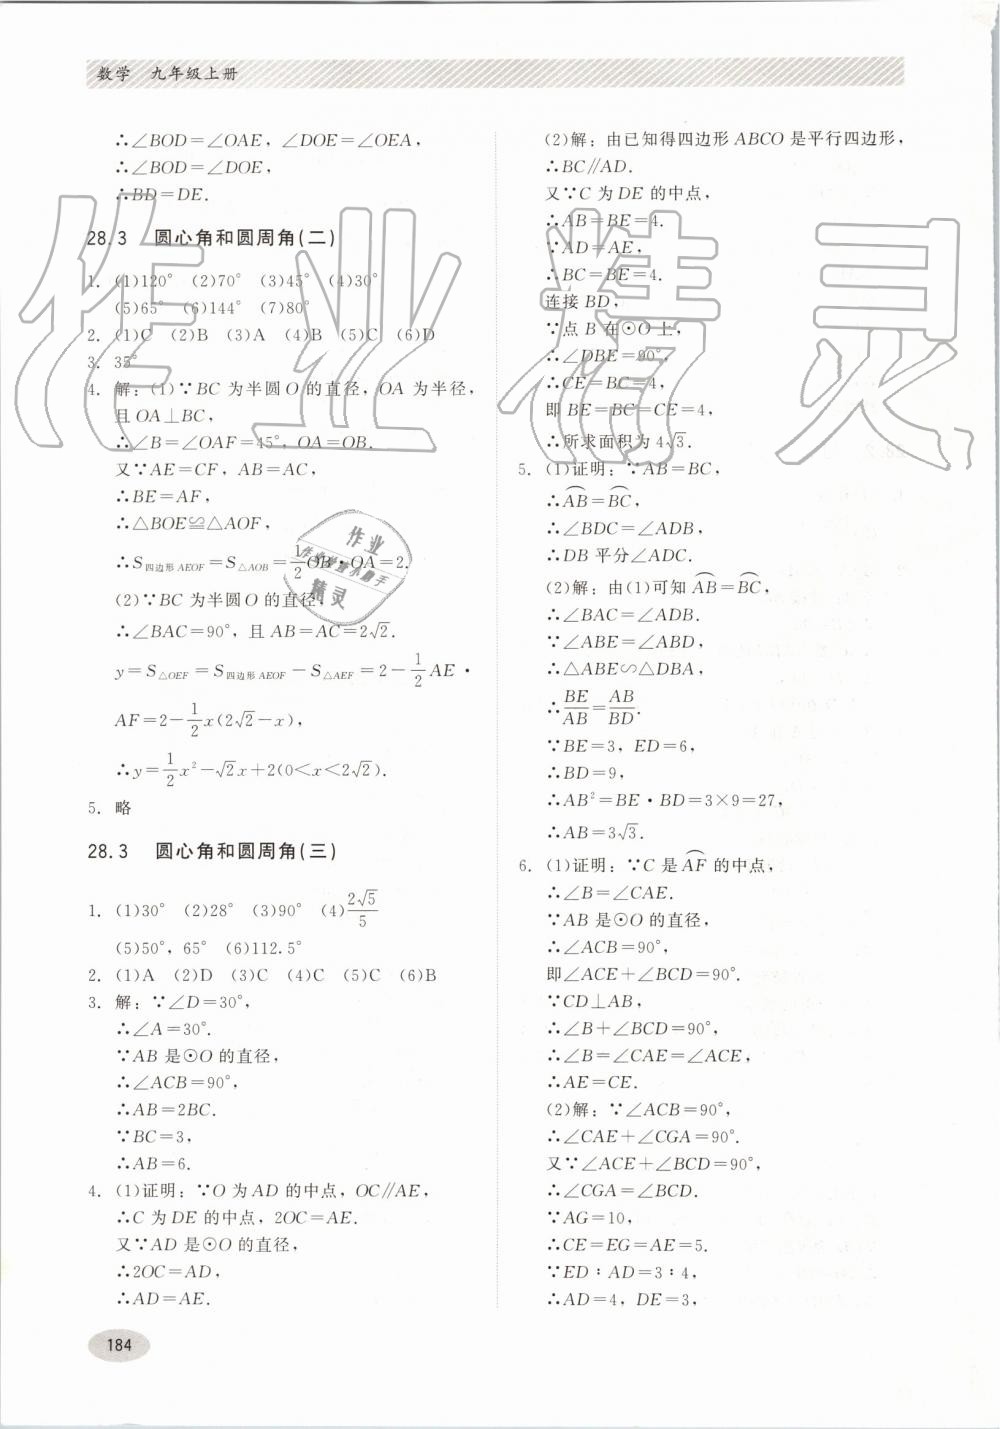 数学 九年级上册
∴∠BOD=∠OAE，∠DOE=∠OEA，
∴∠BOD=∠DOE，
∴BD=DE.
28.3 圆心角和圆周角(二)
1. (1)120° (2)70° (3)45° (4)30°
(5)65° (6)144° (7)80°
2. (1)C (2)B (3)A (4)B (5)C (6)D
3. 35°
4. 解：(1)∵BC 为半圆O的直径，OA 为半径，
且OA⊥BC，
∴∠B=∠OAF=45°，OA=OB.
又∵AE=CF，AB=AC，
∴BE=AF，
∴△BOE≌△AOF，
∴S四边形AEOF=S△AOB=1/2 OB·OA=2.
(2)∵BC 为半圆O的直径，
∴∠BAC=90°，且AB=AC=2√2.
y=S△OEF=S四边形AEOF-S△AEF=2-1/2 AE·
AF=2-1/2 x(2√2-x)，
∴y=1/2 x²-√2x+2(0<x<2√2).
5. 略
28.3 圆心角和圆周角(三)
1. (1)30° (2)28° (3)90° (4)2√5/5
(5)50°，65° (6)112.5°
2. (1)A (2)D (3)C (4)C (5)C (6)B
3. 解：∵∠D=30°，
∴∠A=30°.
∵AB 是⊙O 的直径，
∴∠ACB=90°，
∴AB=2BC.
∵BC=3，
∴AB=6.
4. (1)证明：∵O为AD 的中点，OC∥AE，
∴C 为DE 的中点，2OC=AE.
又∵AD 是⊙O 的直径，
∴2OC=AD，
∴AD=AE.
184
(2)解：由已知得四边形ABCO 是平行四边形，
∴BC∥AD.
又∵C 为 DE 的中点，
∴AB=BE=4.
∵AD=AE，
∴BC=BE=4.
连接 BD，
∵点 B 在⊙O 上，
∴∠DBE=90°，
∴CE=BC=4，
即 BE=BC=CE=4，
∴所求面积为 4√3.
5. (1)证明：∵AB=BC，
∴A͡B=B͡C，
∴∠BDC=∠ADB，
∴DB 平分∠ADC.
(2)解：由(1)可知 A͡B=B͡C，
∴∠BAC=∠ADB.
∵∠ABE=∠ABD，
∴△ABE∽△DBA，
∴BE/AB=AB/BD.
∵BE=3，ED=6，
∴BD=9，
∴AB²=BE·BD=3×9=27，
∴AB=3√3.
6. (1)证明：∵C 是A͡F 的中点，
∴∠B=∠CAE.
∵AB 是⊙O 的直径，
∴∠ACB=90°，
即∠ACE+∠BCD=90°.
∵CD⊥AB，
∴∠B+∠BCD=90°，
∴∠B=∠CAE=∠ACE，
∴AE=CE.
(2)解：∵∠ACB=90°，
∴∠CAE+∠CGA=90°.
又∵∠ACE+∠BCD=90°，
∴∠CGA=∠BCD.
∵AG=10，
∴CE=EG=AE=5.
∵ED：AD=3：4，
∴AD=4，DE=3，
作业精灵
作业
精灵